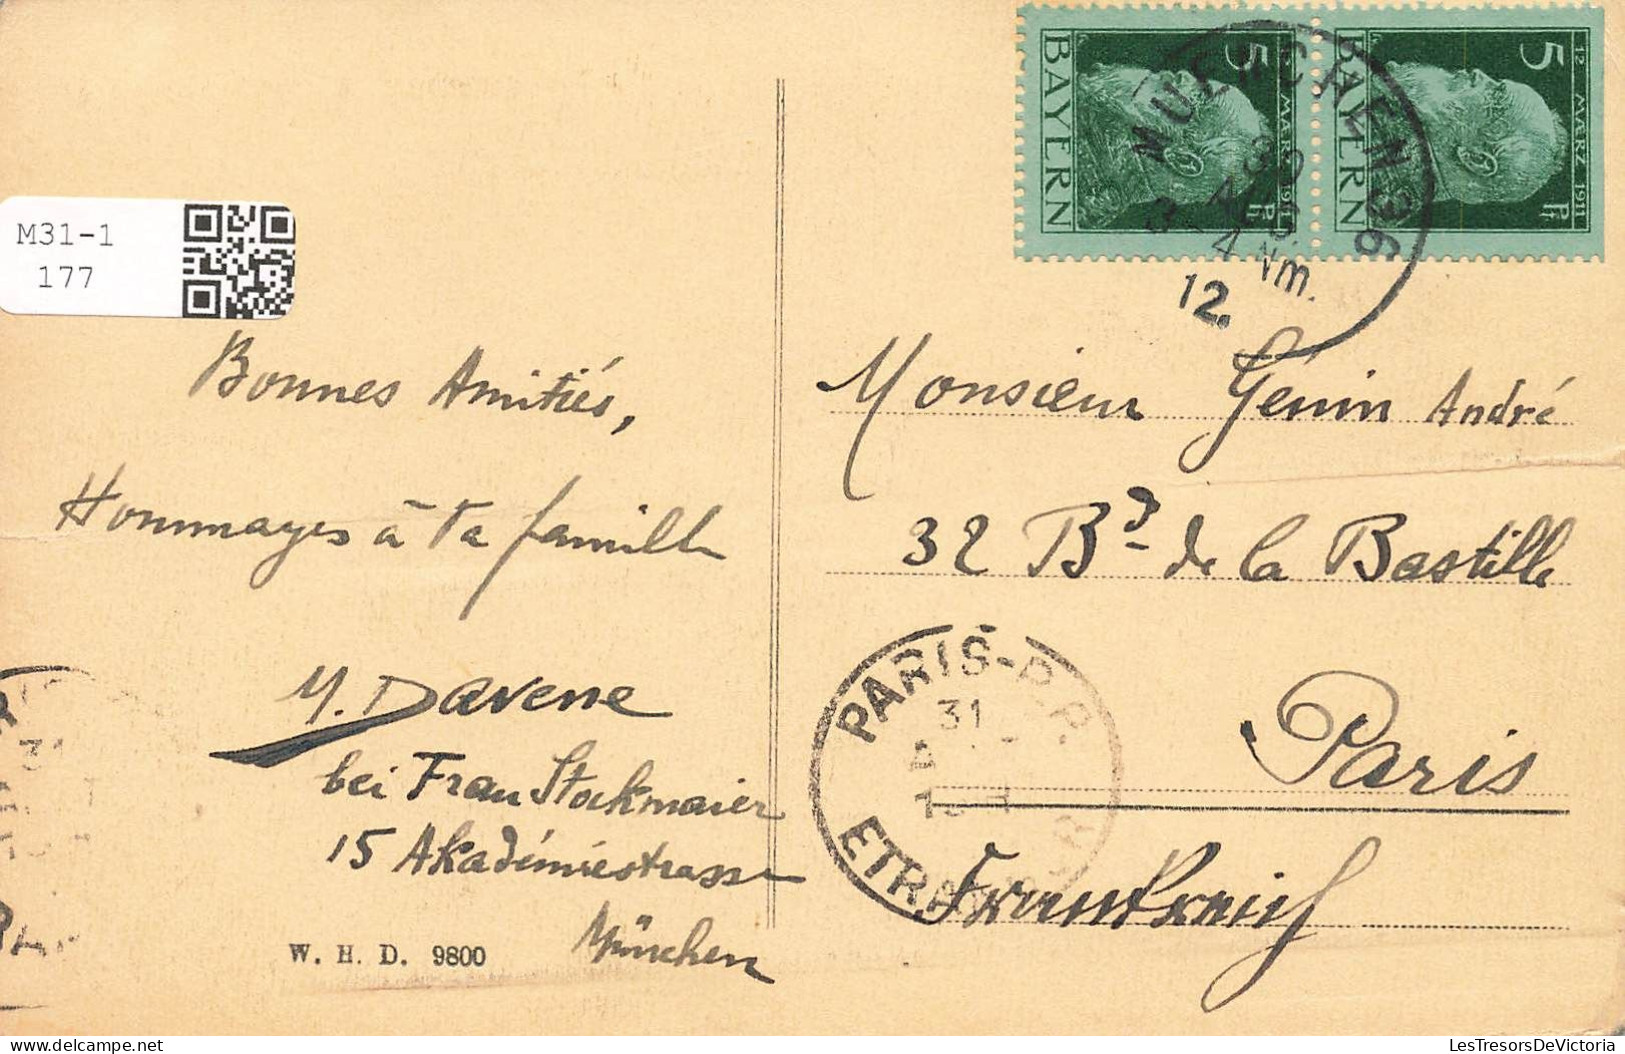 M31-1
177
5
BAYERN
12. MÆRZ 1911
Pf
5
BAYERN
12. MÆRZ 1911
Pf
MUENCHEN 36
30
4 Nm.
12.
Bonnes Amitiés,
Hommages à ta famille
M. Davene
bei Frau Stockmaier
15 Akadémiestrasse
München
W. H. D. 9800
Monsieur Génin André
32 Bd de la Bastille
Paris
Frankreich
PARIS-D.P.
31
ETRANGER
31
LesTresorsDeVictoria.com